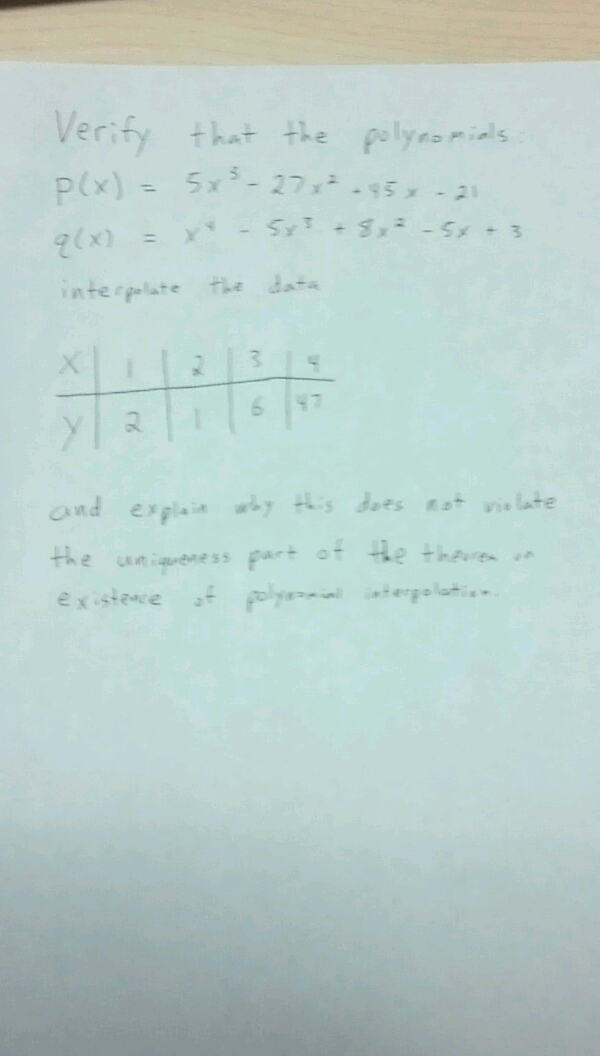 Verify that the polynomials:
p(x) = 5x³ - 27x² + 45x - 21
q(x) = x⁴ - 5x³ + 8x² - 5x + 3
interpolate the data
x | 1 | 2 | 3 | 4
y | 2 | 1 | 6 | 47
and explain why this does not violate
the uniqueness part of the theorem on
existence of polynomial interpolation.